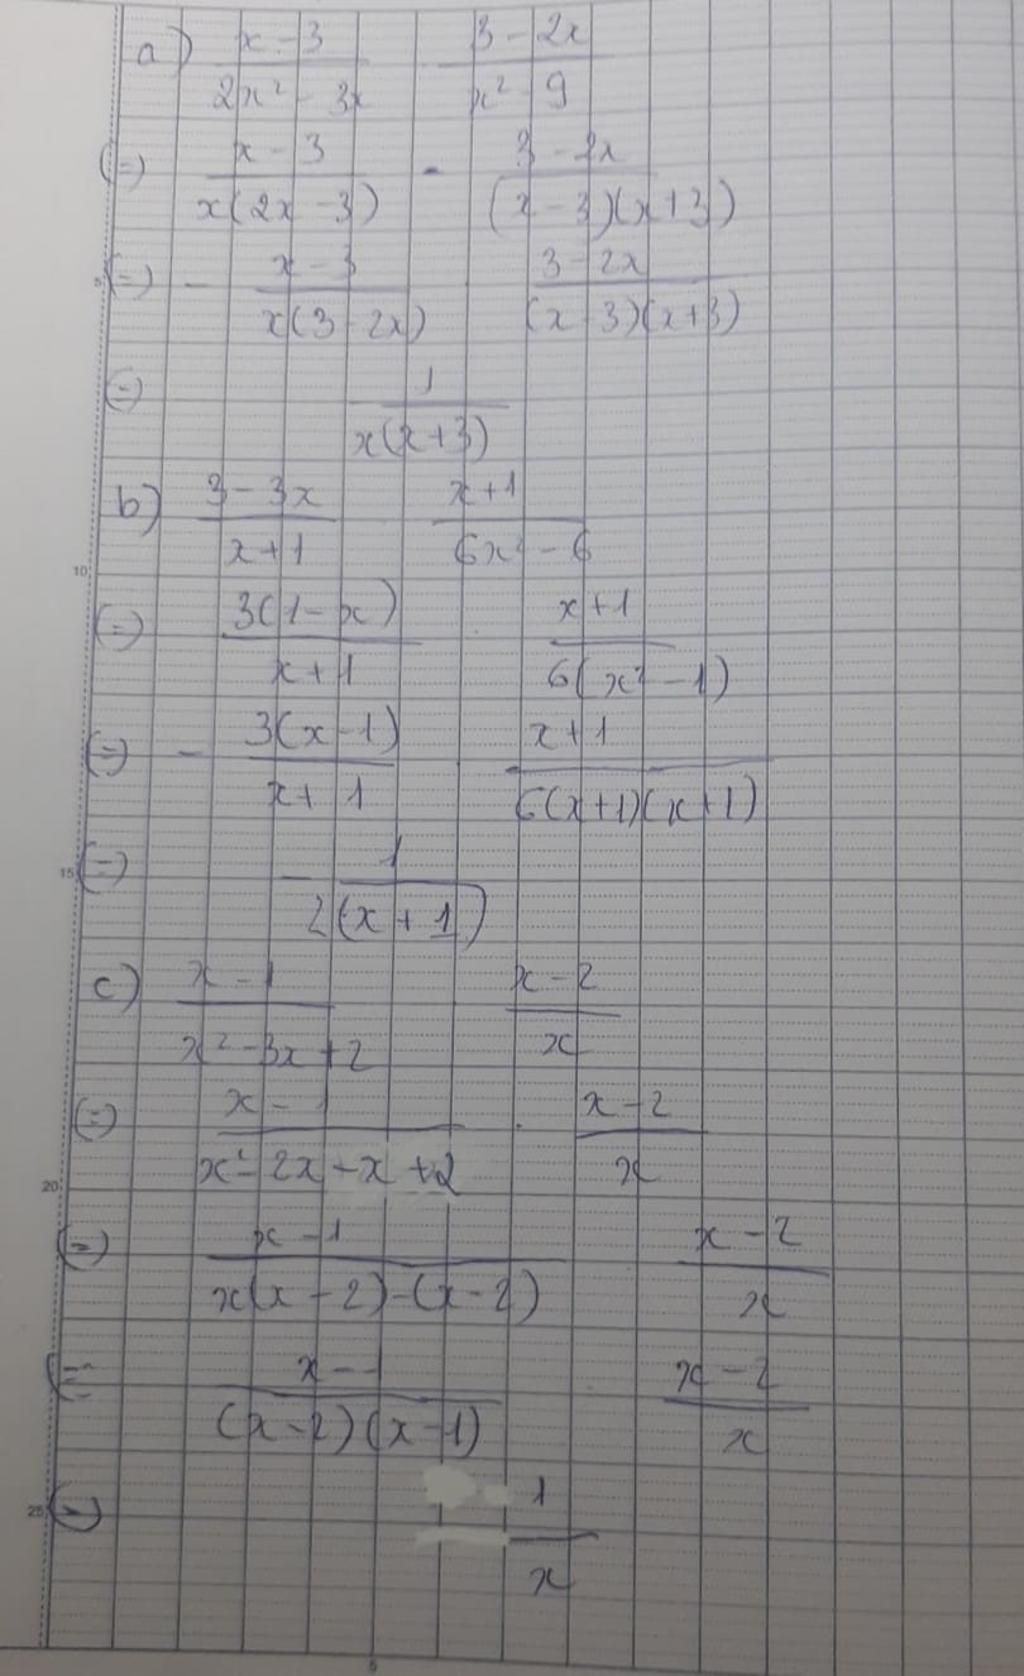 a) (x - 3)/(2x² - 3x) · (3 - 2x)/(x² - 9)
(=) (x - 3)/(x(2x - 3)) · (3 - 2x)/((x - 3)(x + 3))
5 (=) - (x - 3)/(x(3 - 2x)) (3 - 2x)/((x - 3)(x + 3))
(=) 1/(x(x + 3))
b) (3 - 3x)/(x + 1) (x + 1)/(6x² - 6)
10
(=) 3(1 - x)/(x + 1) · (x + 1)/(6(x² - 1))
(=) - 3(x - 1)/(x + 1) · (x + 1)/(6(x + 1)(x + 1))
15 (=) - 1/(2(x + 1))
c) (x - 1)/(x² - 3x + 2) (x - 2)/x
(=) (x - 1)/(x² - 2x - x + 2) · (x - 2)/x
20
(=) (x - 1)/(x(x - 2) - (x - 2)) (x - 2)/x
(= (x - 1)/((x - 2)(x - 1)) (x - 2)/x
25 (=) 1/x
5